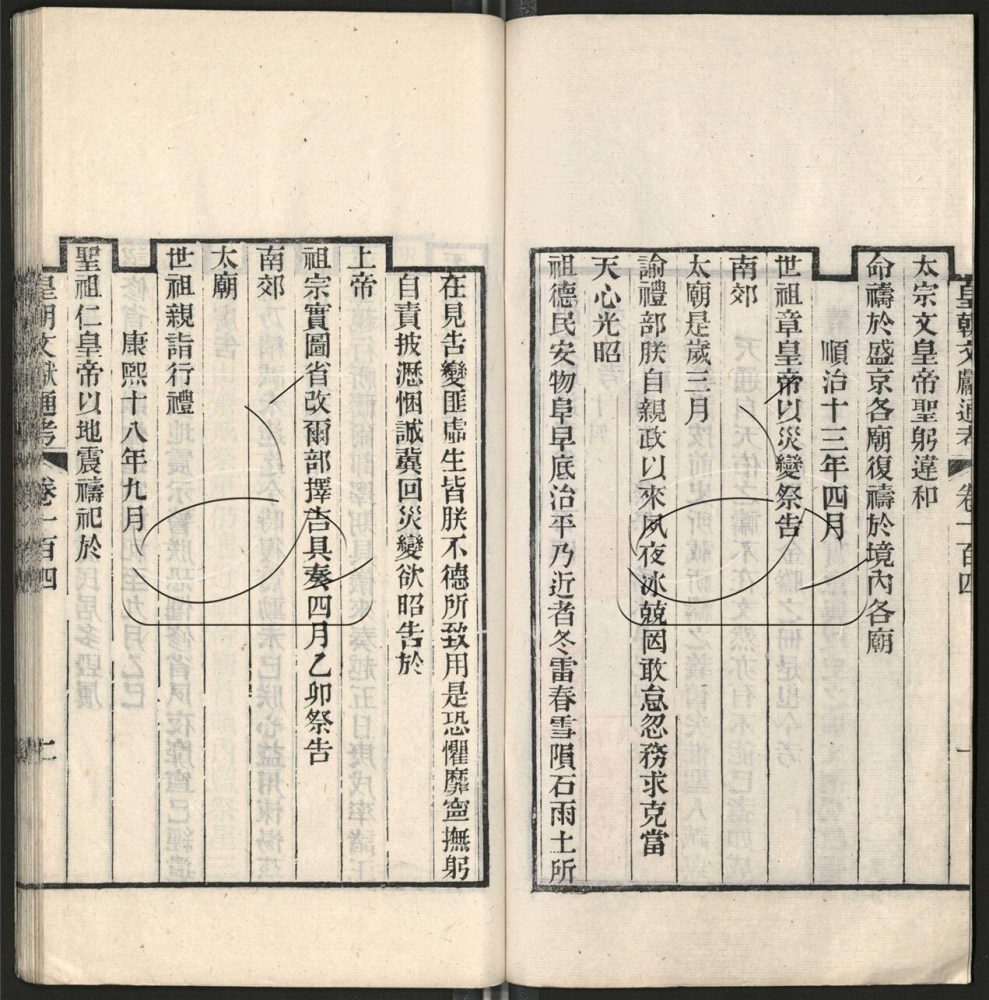 皇朝文獻通考 卷一百四 一
太宗文皇帝聖躬違和
命禱於盛京各廟復禱於境內各廟
順治十三年四月
世祖章皇帝以災變祭告
南郊
太廟是歲三月
諭禮部朕自親政以來夙夜冰兢罔敢怠忽務求克當
天心光昭
祖德民安物阜早底治平乃近者冬雷春雪隕石雨土所
在見告變匪虛生皆朕不德所致用是恐懼靡寧撫躬
自責披瀝悃誠冀回災變欲昭告於
上帝
祖宗實圖省改爾部擇吉具奏四月乙卯祭告
南郊
太廟
世祖親詣行禮
康熙十八年九月
聖祖仁皇帝以地震禱祀於
皇朝文獻通考 卷一百四